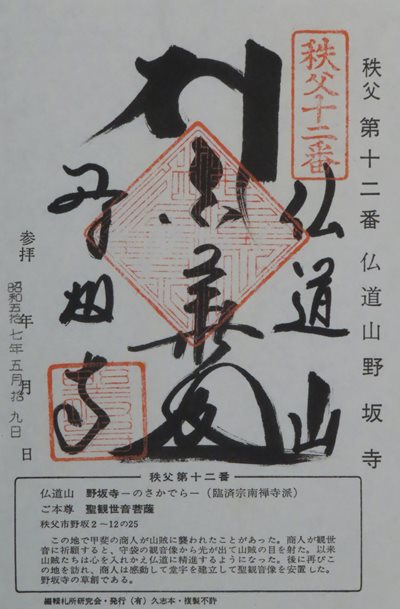 秩父 第十二番 仏道山野坂寺
秩父十二番
仏道山
野坂寺
参拝 年 月 日
昭和五拾七年五月拾九日
秩父第十二番
仏道山 野坂寺―のさかでら―(臨済宗南禅寺派)
ご本尊 聖観世音菩薩
秩父市野坂2〜12の25
この地で甲斐の商人が山賊に襲われたことがあった。商人が観世
音に祈願すると、守袋の観音像から光が出て山賊の目を射た。以来
山賊たちは心を入れかえ仏道に精進するようになった。後に再びこ
の地を訪れ、商人は感動して堂宇を建立して聖観音像を安置した。
野坂寺の草創である。
編輯札所研究会・発行(有)久志本・複製不許